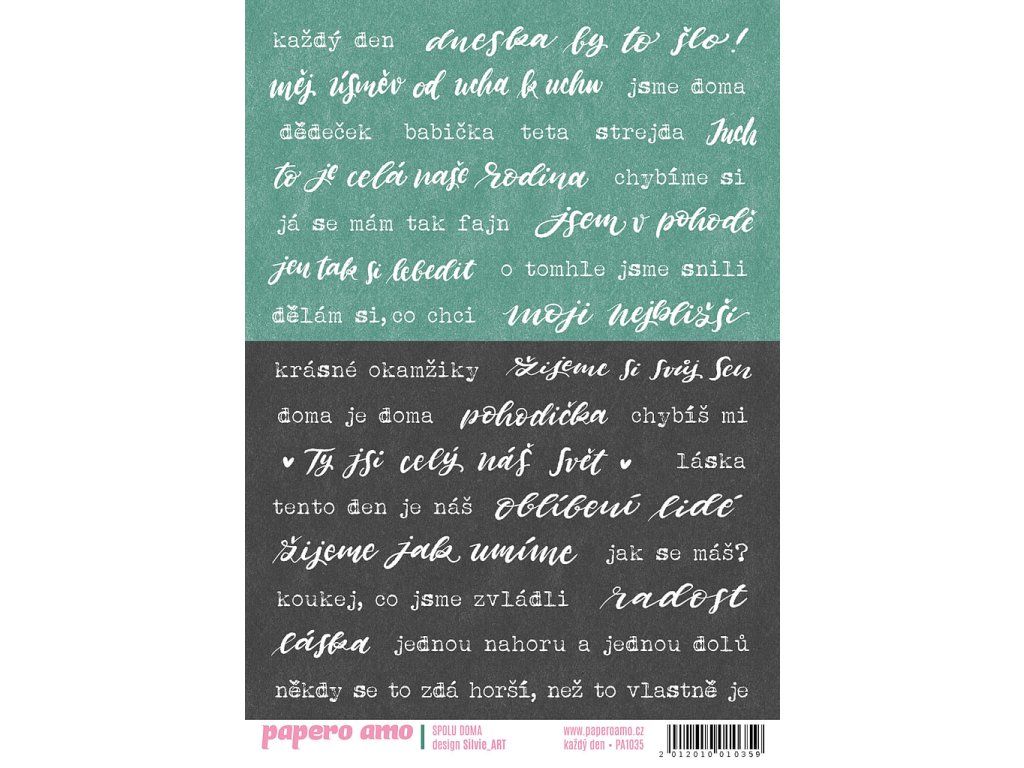 každý den dneska by to šlo!
měj úsměv od ucha k uchu jsme doma
dědeček babička teta strejda Juch
to je celá naše rodina chybíme si
já se mám tak fajn jsem v pohodě
jen tak si lebedit o tomhle jsme snili
dělám si, co chci moji nejbližší
krásné okamžiky žijeme si svůj sen
doma je doma pohodička chybíš mi
♥ Ty jsi celý náš svět ♥ láska
tento den je náš oblíbení lidé
žijeme jak umíme jak se máš?
koukej, co jsme zvládli radost
láska jednou nahoru a jednou dolů
někdy se to zdá horší, než to vlastně je
papero amo SPOLU DOMA www.paperoamo.cz
design Silvie_ART každý den • PA1035
2 012010 010359